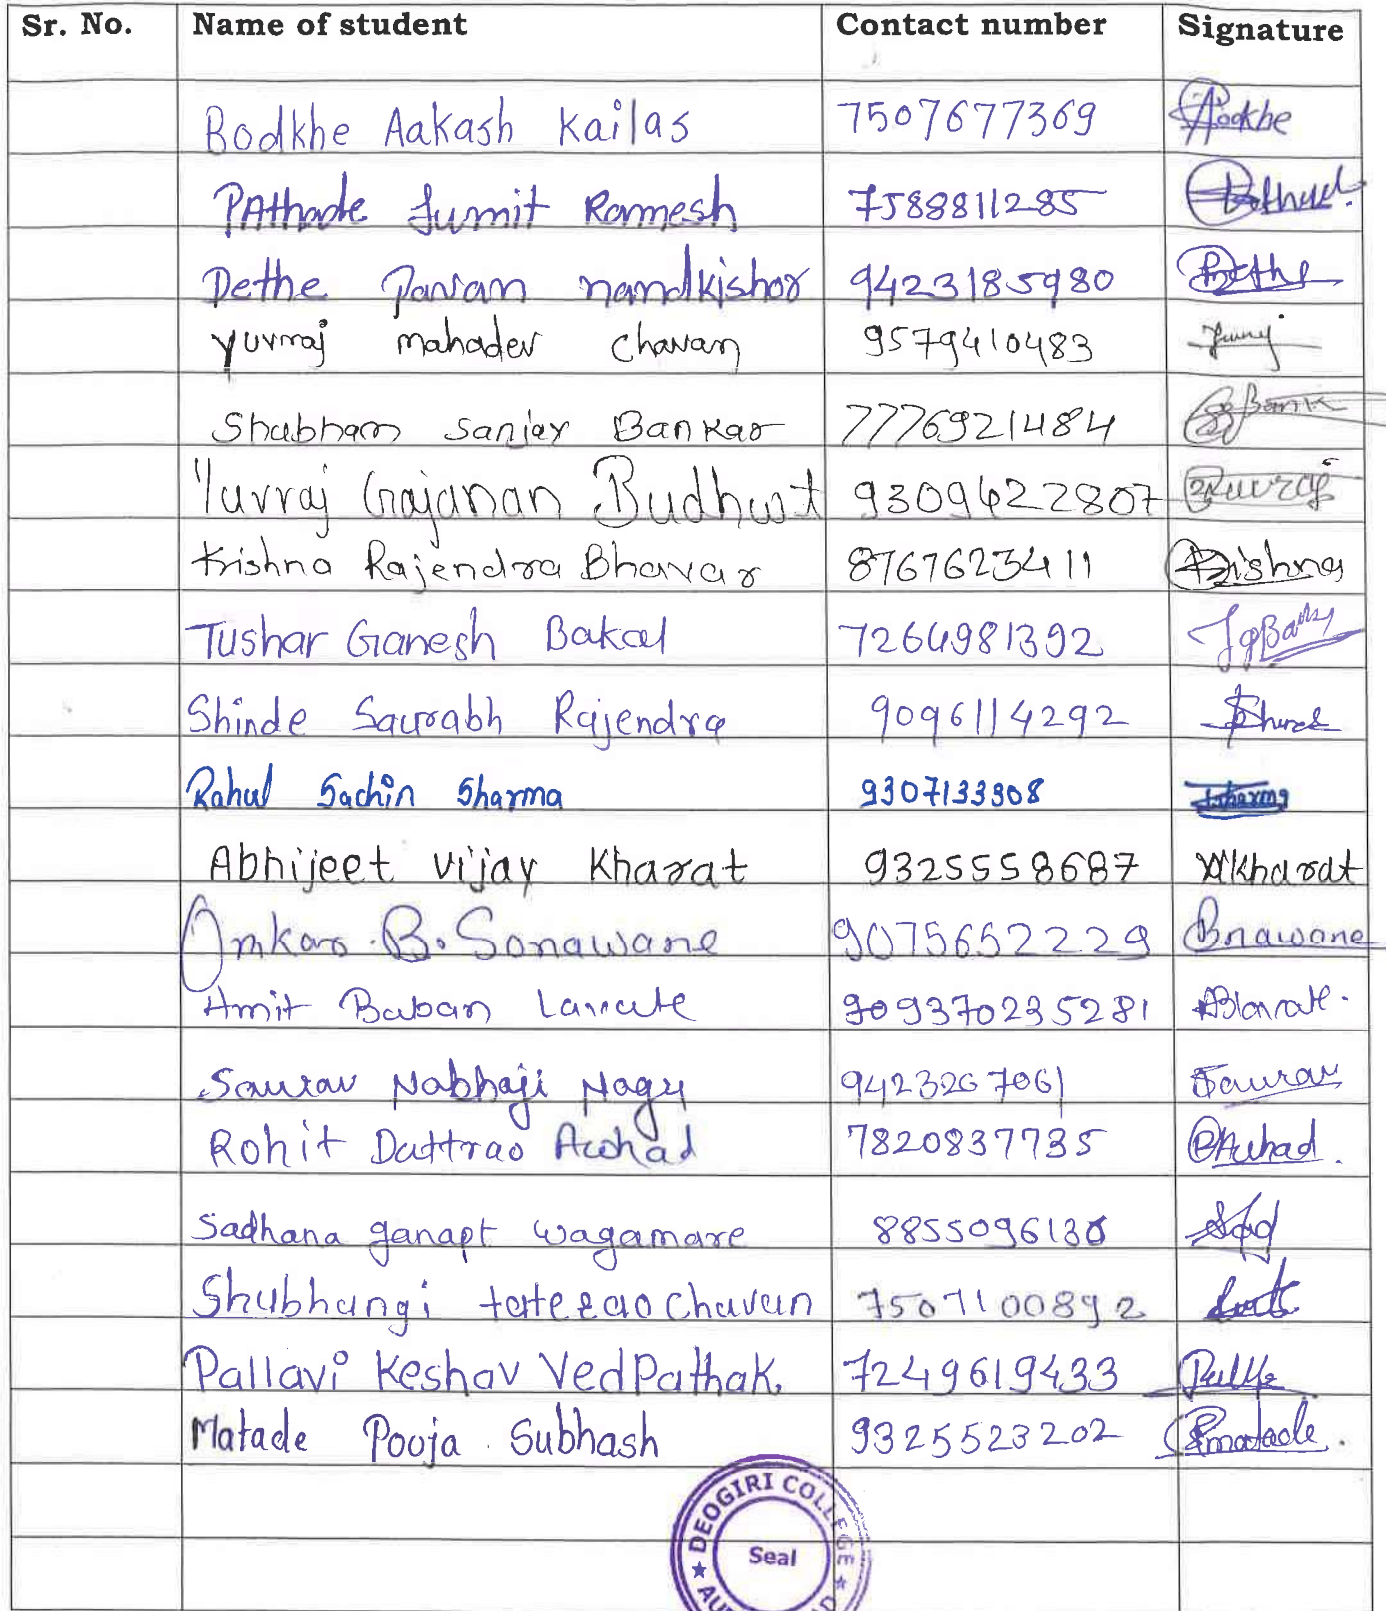 Sr. No. Name of student Contact number Signature
Bodkhe Aakash Kailas 7507677369 Aookhe
PAthade Sumit Ramesh 7588811285
Dethe Pavan nandkishor 9423185980 Dethe
yuvraj mahadev chavan 9579410483
Shubham Sanjay Bankar 7776921484
Yuvraj Gajanan Budhwat 9309422807 Yuvraj
Krishna Rajendra Bhavar 8767623411 Krishna
Tushar Ganesh Bakal 7264981392
Shinde Saurabh Rajendra 9096114292
Rahul Sachin Sharma 9307133308 Sharma
Abhijeet vijay Kharat 9325558687 AKharat
Omkar B. Sonawane 9075652229 Bnawane
Amit Baban Lawate 909370235281
Saurav Nabhaji 9423267061 Saurav
Rohit Dattrao Awhad 7820837735 Awhad.
Sadhana ganapt wagamare
Shubhangi taterao chavan 7507100892
Pallavi Keshav VedPathak. 7249619433
Matade Pooja Subhash 9325523202 Pmatade.
DEOGIRI COLLEGE
Seal